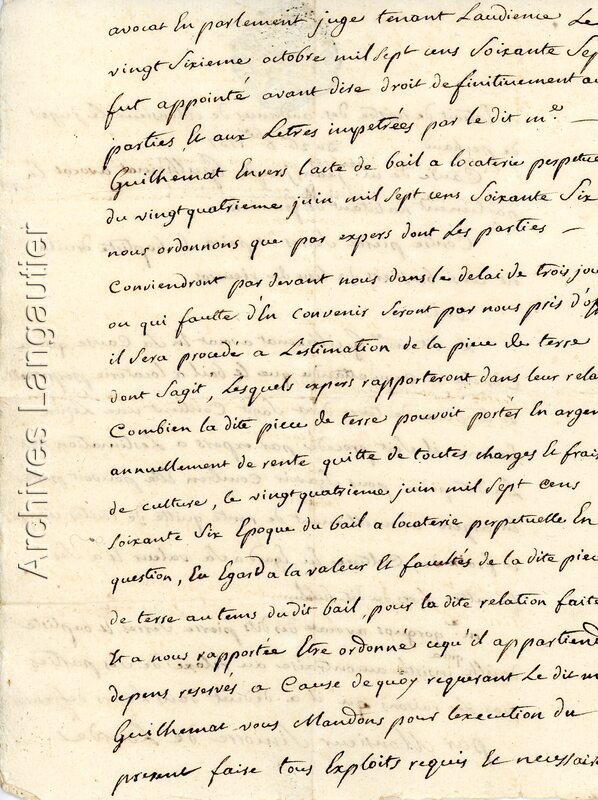 avocat En parlement juge tenant Laudience Le
vingt Sixieme octobre mil sept cens Soixante Sep
fut appointé avant dire droit definitivement au
parties, Et aux Letres impetrées par le dit mᵉ. —
Guilhemat Envers l'acte de bail a locaterie perpetue
du vingt quatrieme juin mil sept cens Soixante Six
nous ordonnons que par expers dont Les parties —
Conviendront par devant nous dans le delai de trois jou
ou qui faulte d'En Convenir Seront par nous pris d'off
il Sera procede a L'estimation de la piece de terre
dont Sagit, Lesquels expers rapporteront dans leur rela
Combien la dite piece de terre pouvoit portés En argen
annuellement de rente quitte de toutes charges Et frais
de culture, le vingt quatrieme juin mil sept cens
Soixante Six Epoque du bail a locaterie perpetuelle En
question, Eu Egard a la valeur Et facultés de la dite piec
de terre au tems du dit bail, pour la dite relation faite
Et a nous rapportée Etre ordonné ce qu'il appartiend
depens reservés a Cause de quoy requerant Le dit m
Guilhemat vous Mandons pour l'execution du
present faire tous Exploits requis Et necessaire
Archives Langautier